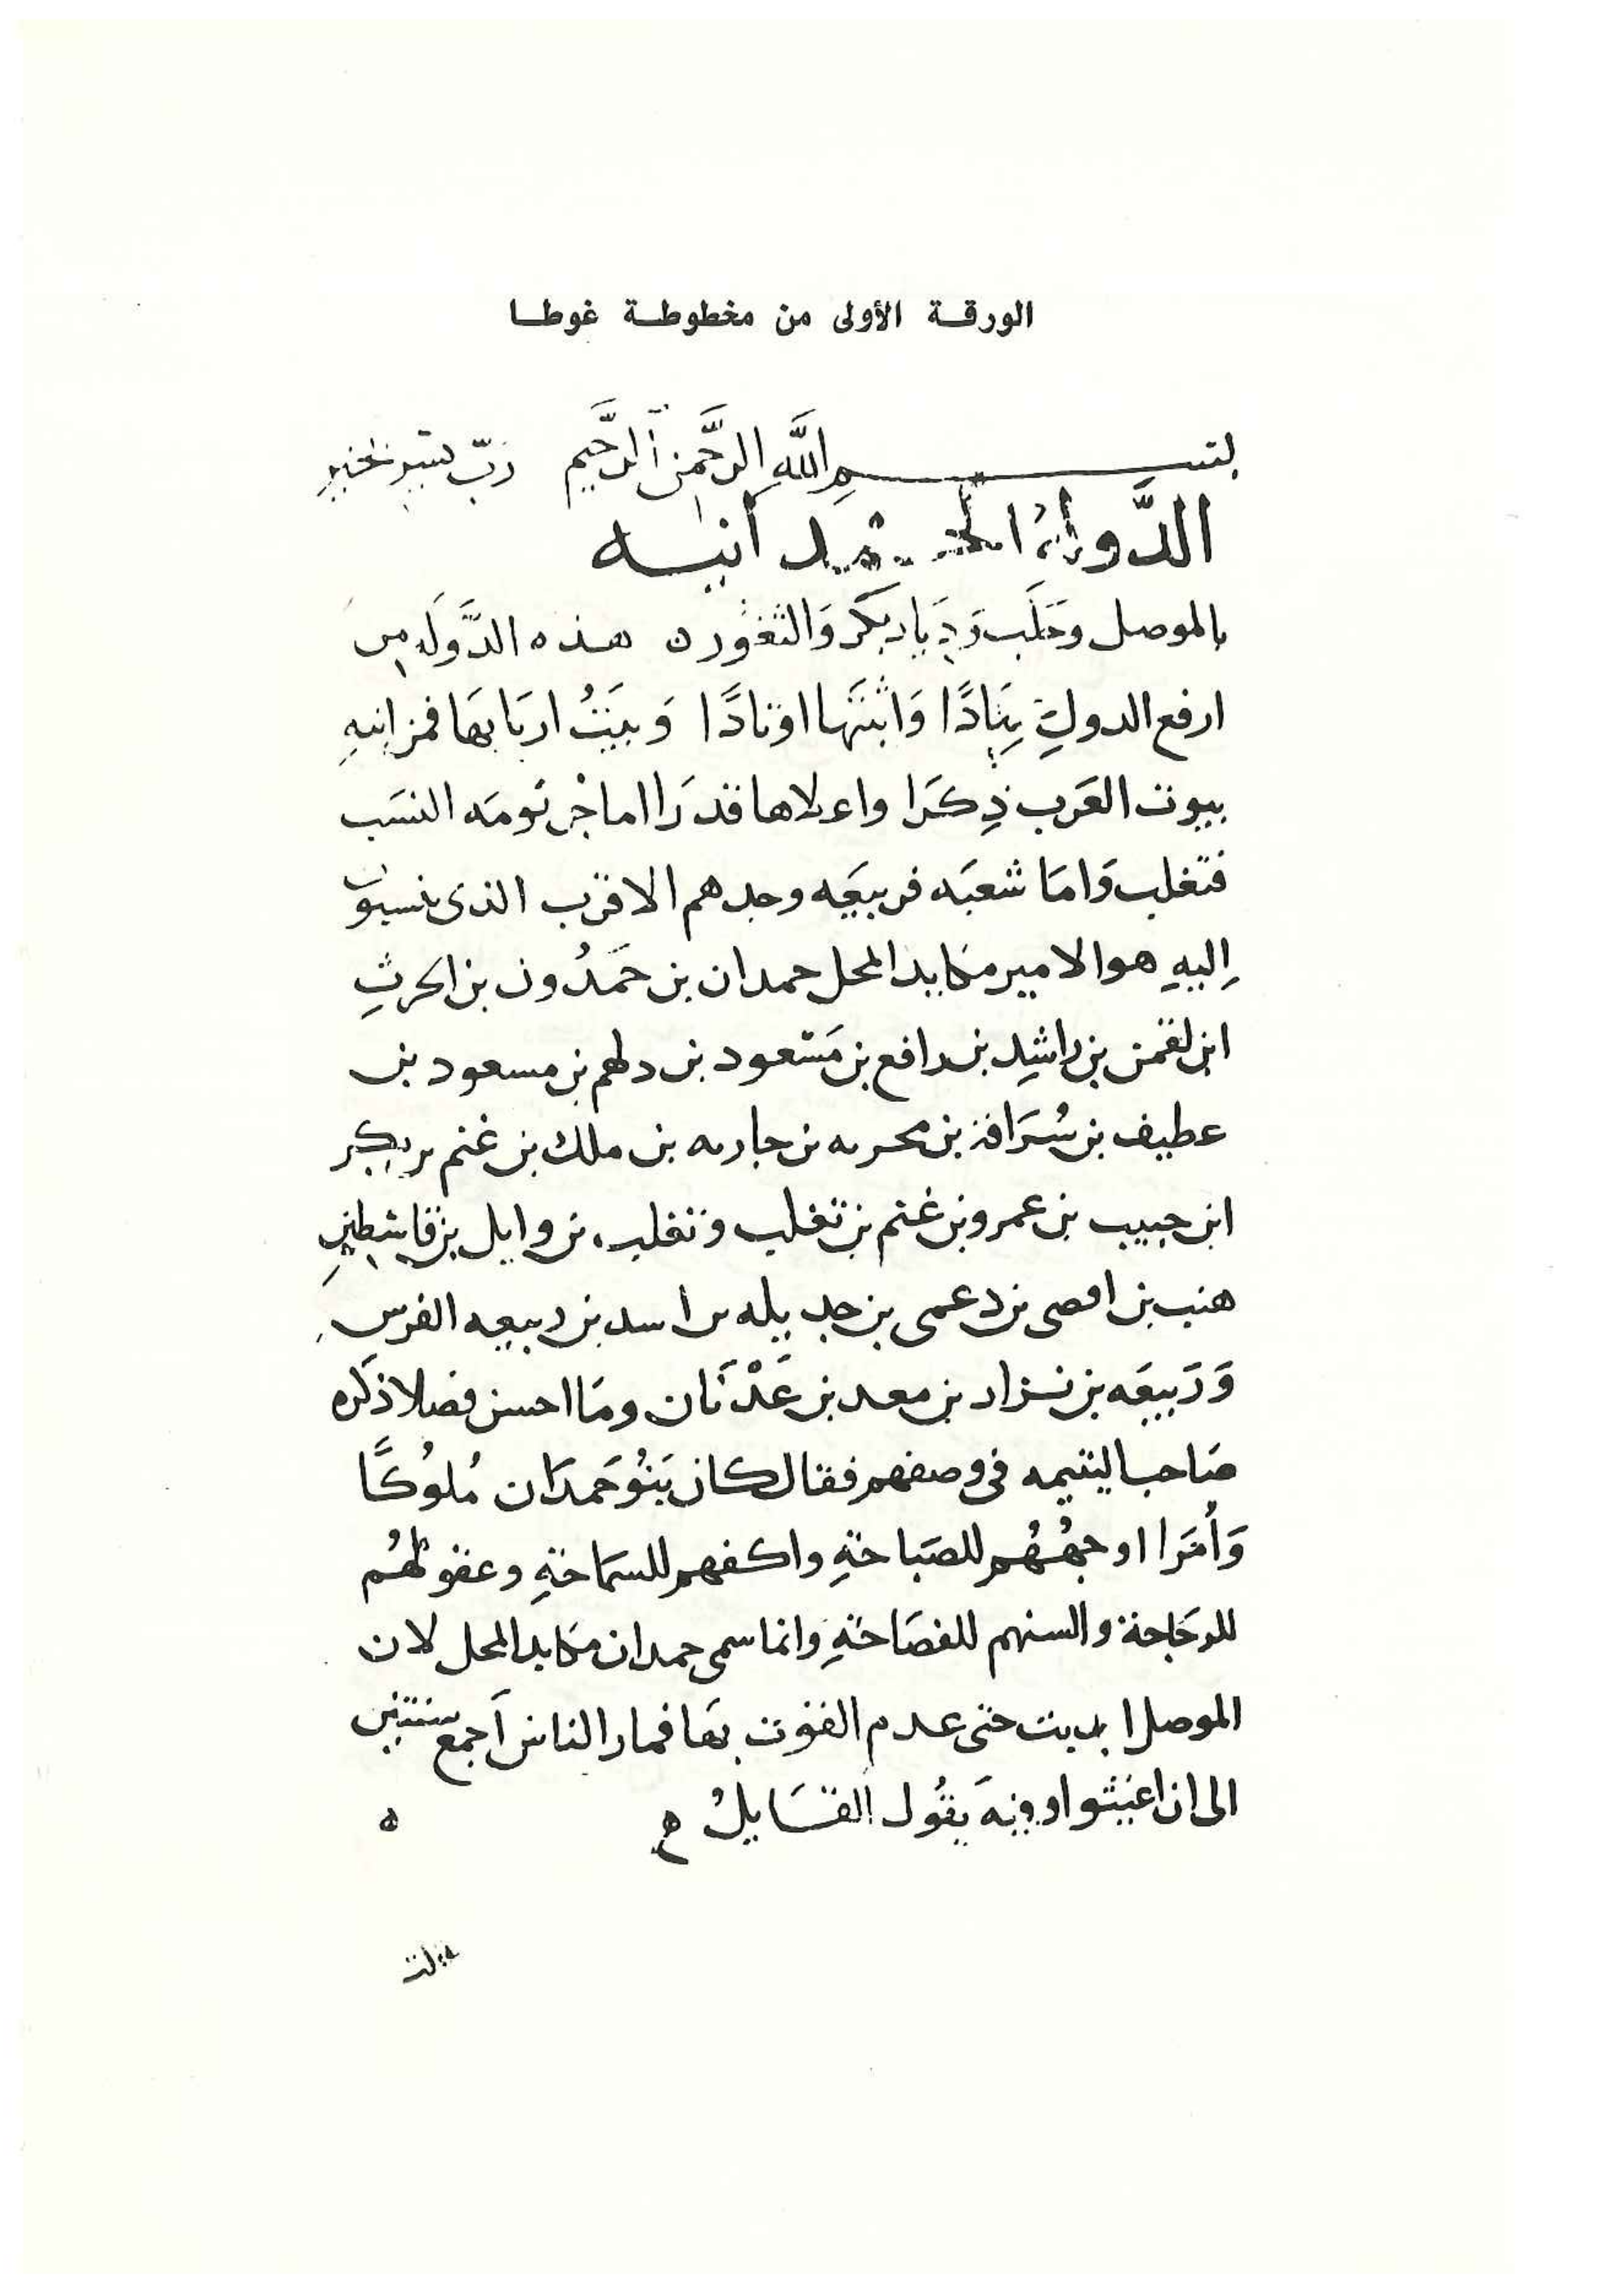 الورقة الأولى من مخطوطة غوطا
بسم اللَّهِ الرَّحمنِ الرَّحيم رَبّ يسر بخير
الدَّولة الحمدانيه
بالموصل وحَلَب وَدِيَار بَكر وَالثغُور ه هذه الدَّوَله من
ارفع الدولِ عِمَادًا وَاثبَتَها اوتادًا وَبيَتُ اربَابهَا فمن انبهِ
بيوت العَرَب ذِكرَا واعلاها قدرَا اما جُرثومَه النسَب
فتغلب وَامَا شعبَه فربيعَه وجدهم الاقرَب الذى ينسبون
اِليهِ هو الامير مكايد المحل حمدان بن حَمدُون بن الحرثِ
ابن لقمن بن راشِد بن رافع بن مَسعود بن دلهم بن مسعود بن
عطيف بن سُرَاقة بن محربه بن حارىه بن ملك بن غنم بن بكر
ابن حبيب بن عمرو بن غنم بن تغلب وتغلب بن وايل بن قاسط بنِ
هنب بن افصى بن دعمى بن جديله بن اسد بن ربيعه الفرس
وَرَبيعَه بن نزار بن معد بن عَدْنَان ومَا احسن فصلا ذكره
صَاحب اليتيمه فى وصفهم فقال كان بَنُو حَمدَان مُلوُكًا
وَاُمَرَا اوجهُهُم للصَبَاحَةِ واكفهم للسَمَاحَةِ وعقولهُم
للرجَاحة والسنهم للفصَاحَةِ وانما سمى حمدان مكايد المحل لان
الموصل اجدبت حتى عدم القوت بهَا فمار الناس اَجمع سنتين
الى ان اغيثوا وفيه يَقُول القَايلُ ه ه